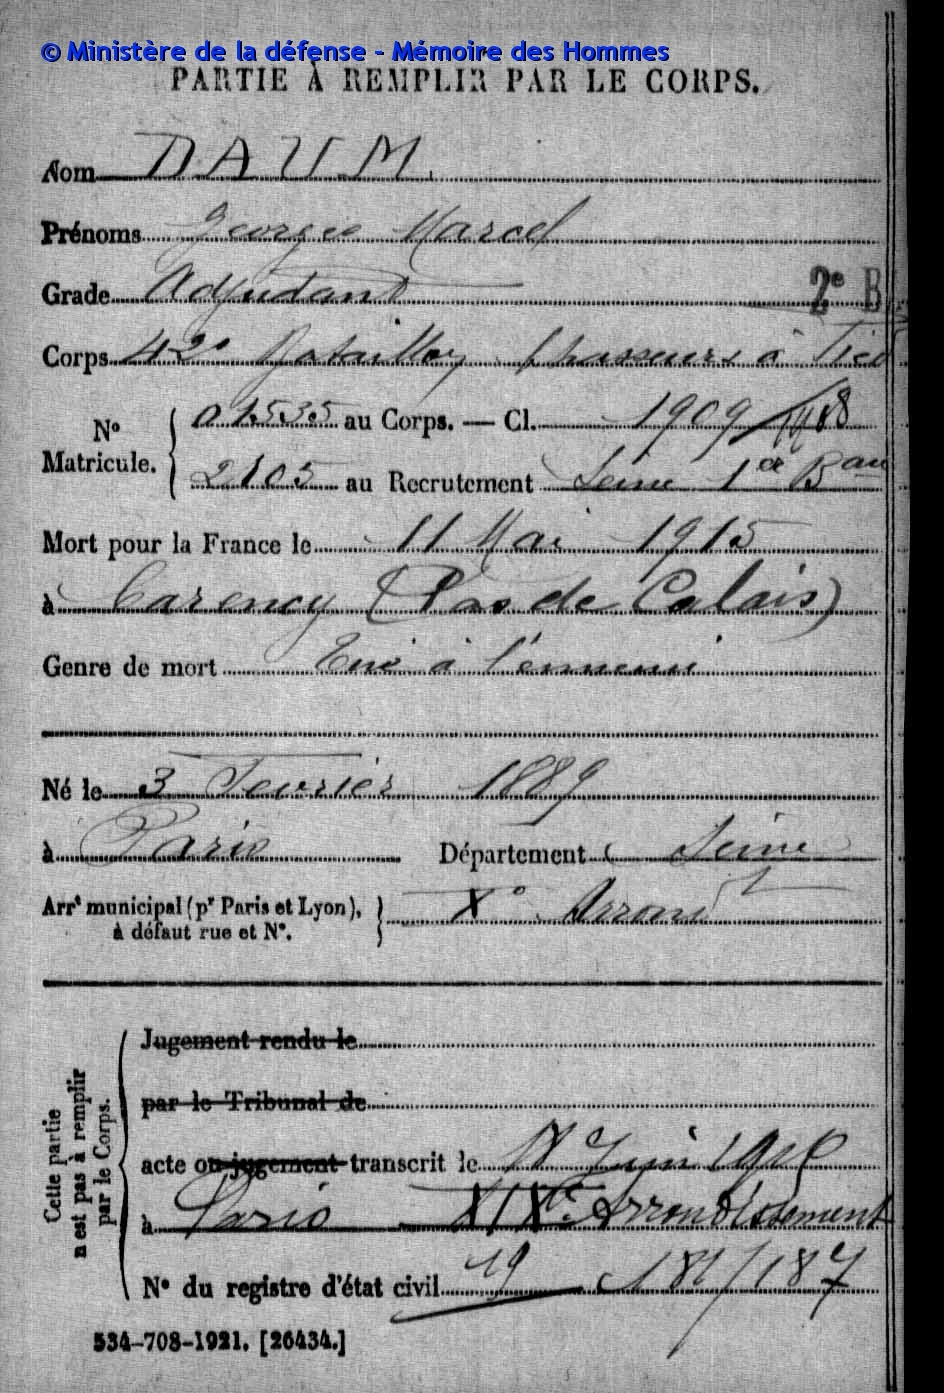 © Ministère de la défense - Mémoire des Hommes
PARTIE À REMPLIR PAR LE CORPS.
Nom DAUM.
Prénoms Georges Marcel
Grade Adjudant
2e B
Corps 42e Bataillon Chasseurs à Pied
No Matricule. { 01535 au Corps. — Cl. 1909
2105 au Recrutement Seine 1er Bau
Mort pour la France le 11 Mai 1915
à Carency (Pas de Calais)
Genre de mort Tué à l'ennemi
Né le 3 Fevrier 1889
à Paris Département Seine
Arrt municipal (pr Paris et Lyon), à défaut rue et No. } Xe Arrondt
Cette partie n'est pas à remplir par le Corps.
Jugement rendu le
par le Tribunal de
acte ou jugement transcrit le Juin
à Paris XIXe Arrondissement
No du registre d'état civil 19
534-708-1921. [26434.]